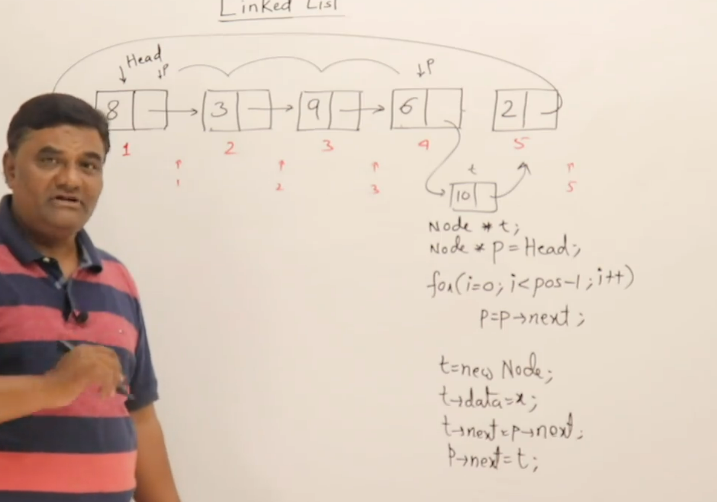 Linked List
Head
p
p
8
3
9
6
2
1
2
3
4
5
1
2
3
5
t
10
Node * t;
Node * p = Head;
for(i=0; i<pos-1; i++)
p=p→next;
t=new Node;
t→data=x;
t→next=p→next;
p→next=t;